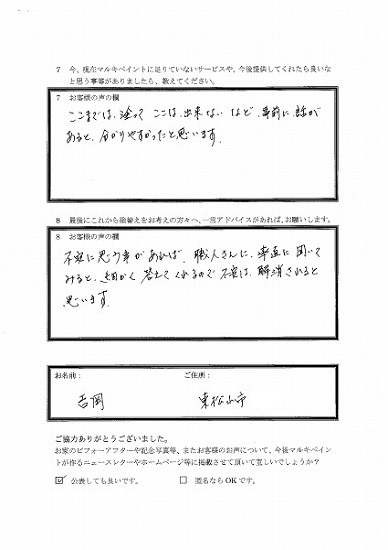 7 今、現在マルキペイントに足りていないサービスや、今後提供してくれたら良いな
と思う事等がありましたら、教えてください。
7 お客様の声の欄
ここまでは、塗って ここは、出来ない など、事前に話が
あると、分かりやすかったと思います。
8 最後にこれから塗替えをお考えの方々へ、一言アドバイスがあれば、お願いします。
8 お客様の声の欄
不安に思う事があれば、職人さんに、率直に聞いて
みると、細かく答えてくれるので不安は、解消されると
思います。
お名前： ご住所：
吉岡 東松山市
ご協力ありがとうございました。
お家のビフォーアフターや記念写真等、またお客様のお声について、今後マルキペイン
トが作るニュースレターやホームページ等に掲載させて頂いて宜しいでしょうか？
☑ 公表しても良いです。 □ 匿名ならOKです。